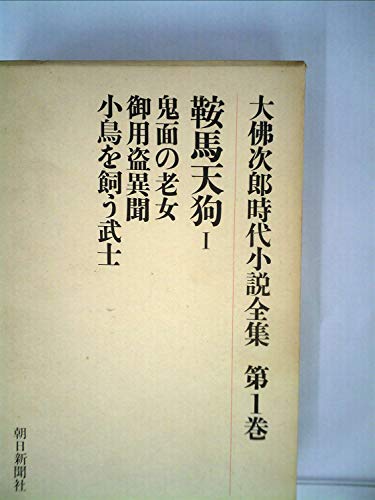 大佛次郎時代小説全集 第1巻
鞍馬天狗 I
鬼面の老女
御用盗異聞
小鳥を飼う武士
朝日新聞社